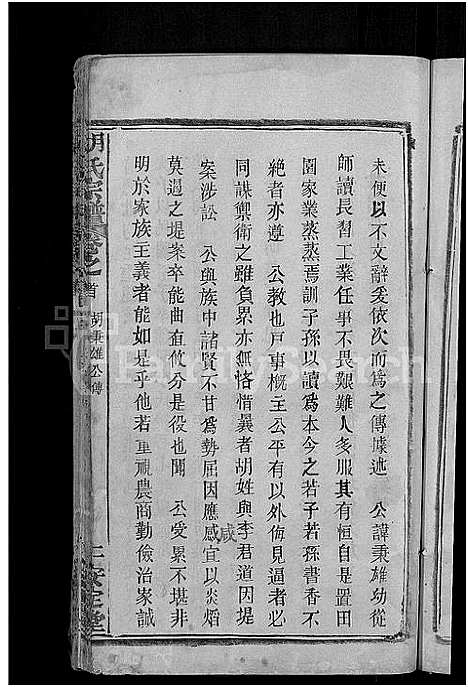 未便以不文辭爰依次而爲之傳據述　公諱秉雄幼從
師讀長習工業任事不畏艱難人多服其有恒自是置田
園家業蒸蒸焉訓子孫以讀爲本今之若子若孫書香不
絶者亦遵　公教也戸事概主公平有以外侮見逼者必
同謀禦衛之雖負累亦無悋惜曩者胡姓與李君道因堤
案涉訟　公與族中諸賢不甘爲勢屈因應咸宜以炎熖
咸
莫遏之堤案卒能曲直攸分是役也聞　公愛累不堪非
明於家族主義者能如是乎他若重視農商勤儉治家誠
胡氏宗譜
卷之首
胡秉雄公傳
安定堂
FamilySearch